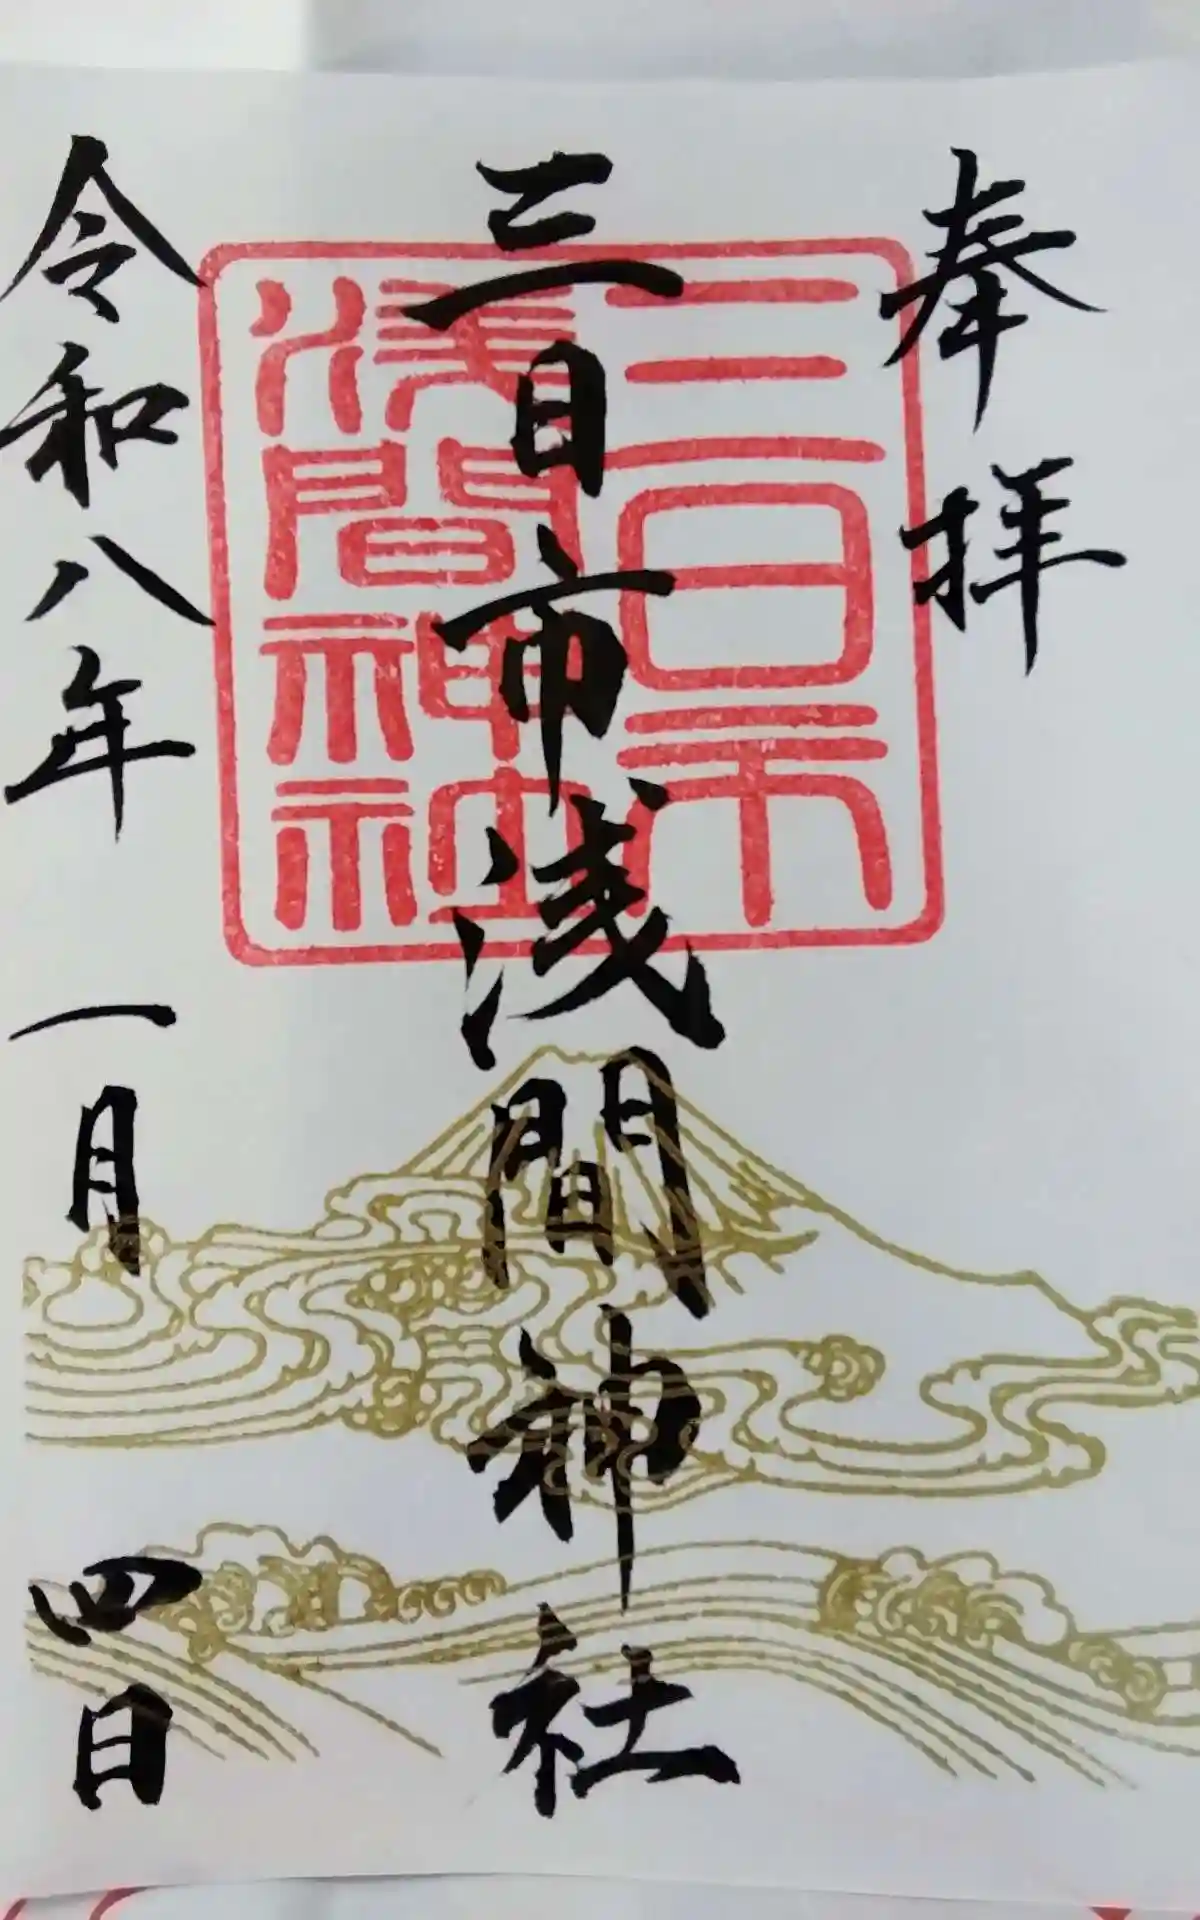 奉拝
三日市浅間神社
令和八年一月四日
三日市
浅間神社